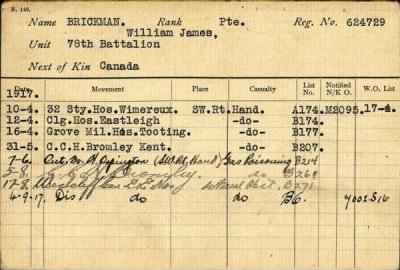 B. 149.
Name BRICKMAN. Rank Pte. Reg. No 624729
William James,
Unit 78th Battalion
Next of Kin Canada
1917.
Date Movement Place Casualty List No. Notified N/K O. W.O. List
10-4. 32 Sty.Hos.Wimereux. SW.Rt.Hand. A174. M2095. 17-4.
12-4 Clg.Hos.Eastleigh -do- B174.
16-4. Grove Mil.Hos.Tooting. -do- B177.
31-5. C.C.H.Bromley Kent. -do- B207.
7-6. Ont. M. H. Orpington (SW.Rt.Hand) Gas Poisoning B214
5-8. Bromley. do B261
17-8. B271
4-9-17. Dis do do B6.